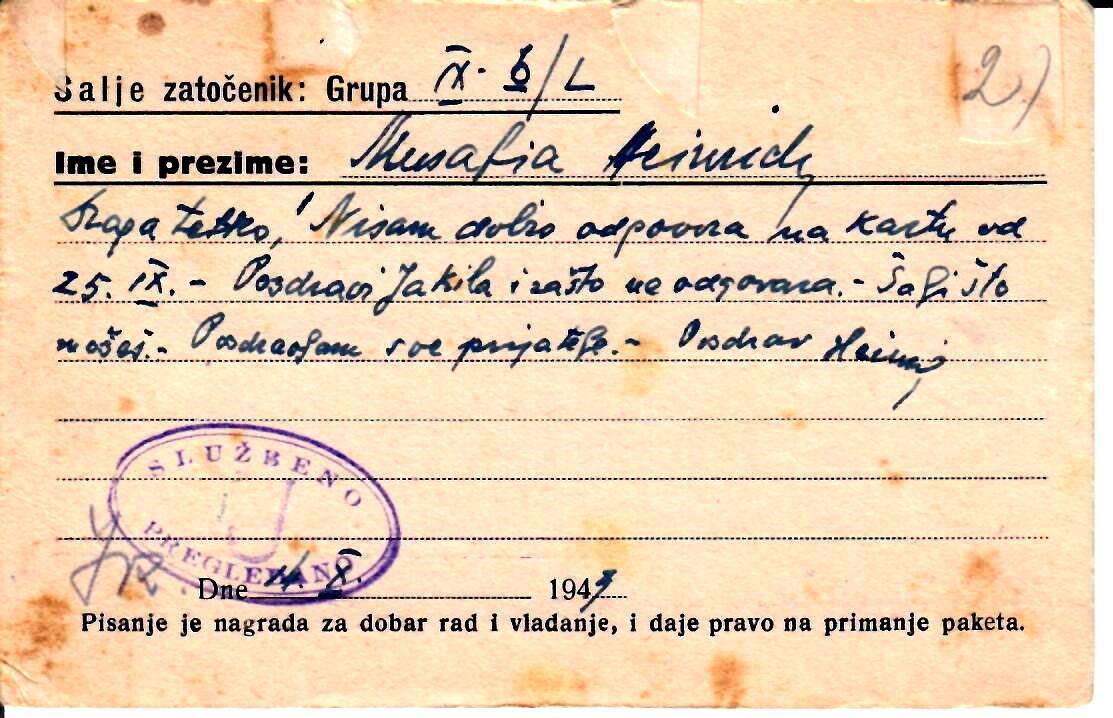 Šalje zatočenik: Grupa IX. b/L
2)
Ime i prezime: Musafia Heinrich
Draga tetko! Nisam dobio odgovora na kartu od
25. IX. - Pozdravi Jakila i zašto ne odgovara. - Šalji što
možeš. - Pozdravljam sve prijatelje. - Pozdrav Heinrich
SLUŽBENO
U
PREGLEDANO
Dne 14. X. 1943
Pisanje je nagrada za dobar rad i vladanje, i daje pravo na primanje paketa.